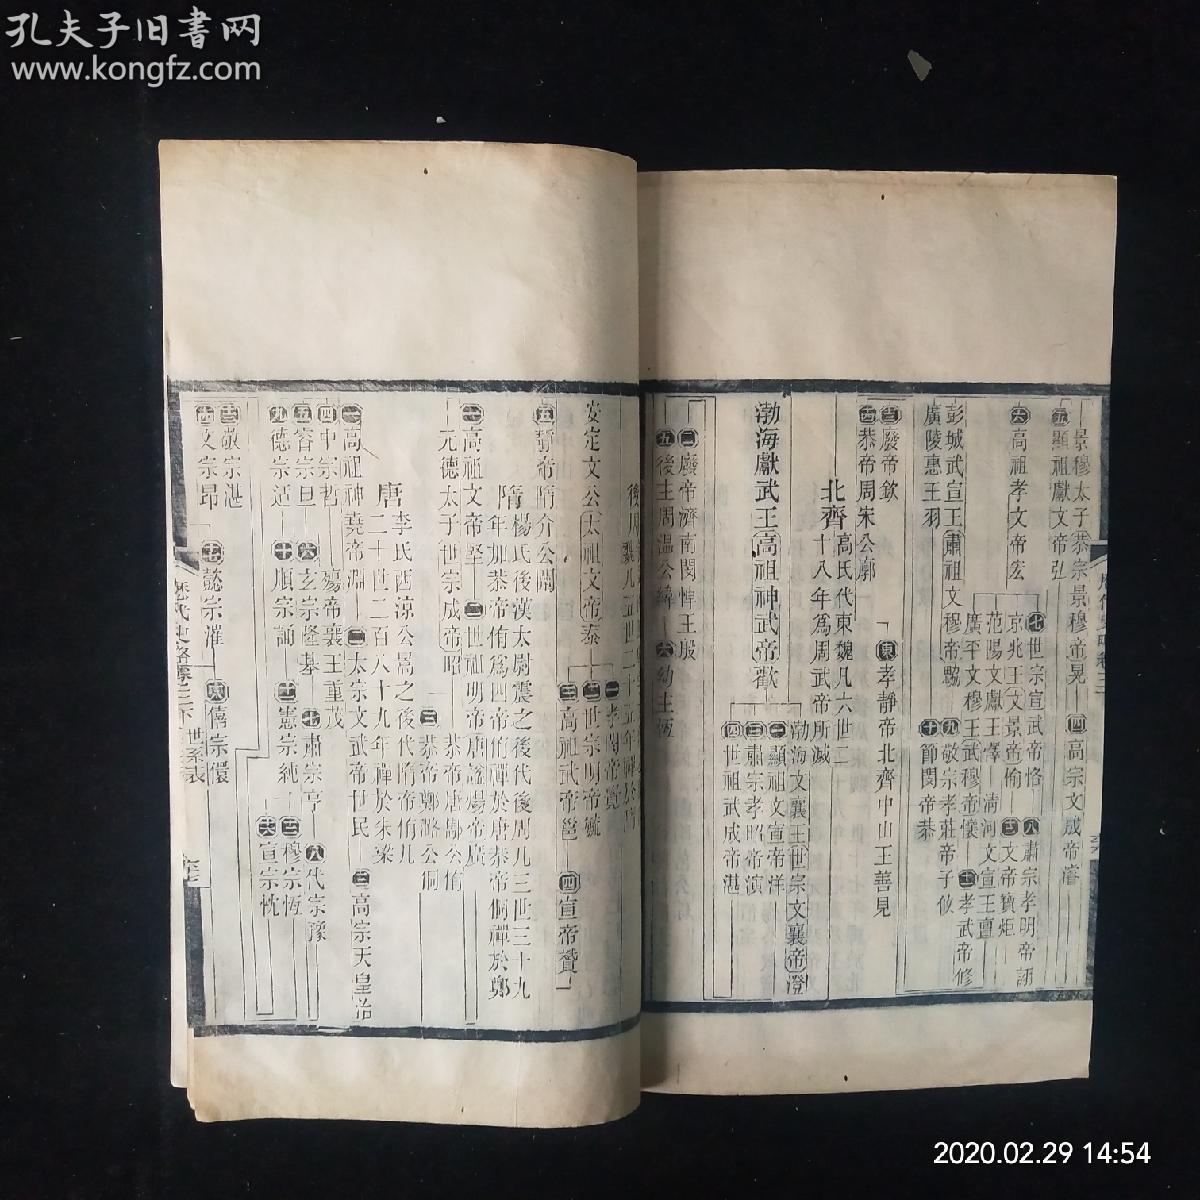 孔夫子旧书网
www.kongfz.com
景穆太子恭宗景穆帝晃 四高宗文成帝濬
五顯祖獻文帝弘
六高祖孝文帝宏
七世宗宣武帝恪 八肅宗孝明帝詡
京兆王文景帝愉 文帝寶炬
范陽文獻王懌 清河文宣王亶
廣平文穆王武穆帝懷 孝武帝修
彭城武宣王肅祖文穆帝勰 九敬宗孝莊帝子攸
廣陵惠王羽 十節閔帝恭
廢帝欽
東孝靜帝北齊中山王善見
恭帝周宋公廓
北齊高氏代東魏凡六世二
十八年爲周武帝所滅
渤海獻武王高祖神武帝歡
渤海文襄王世宗文襄帝澄
一顯祖文宣帝洋
三肅宗孝昭帝演
四世祖武成帝湛
二廢帝濟南閔悼王殷
五後主周溫公緯 六幼主恆
安定文公太祖文帝泰
二世宗明帝毓
三高祖武帝邕 四宣帝贇
五靜帝隋介公闡
隋楊氏後漢太尉震之後代後周凡三世三十九
年加恭帝侑爲四帝侑禪於唐泰帝侗禪於鄭
一高祖文帝堅 二世祖明帝唐諡煬帝廣
元德太子世宗成帝昭
恭帝唐酅公侑
三恭帝鄭潞公侗
唐李氏西涼公暠之後代隋帝侑凡
二十世二百八十九年禪於朱梁
一高祖神堯帝淵 二太宗文武帝世民 三高宗天皇治
四中宗哲 殤帝襄王重茂
五睿宗旦 六玄宗隆基 七肅宗亨 八代宗豫
九德宗适 十順宗誦 十一憲宗純 穆宗恆
宣宗忱
敬宗湛
文宗昂 懿宗漼 僖宗儇
歷代史略卷三下 世系表
2020.02.29 14:54